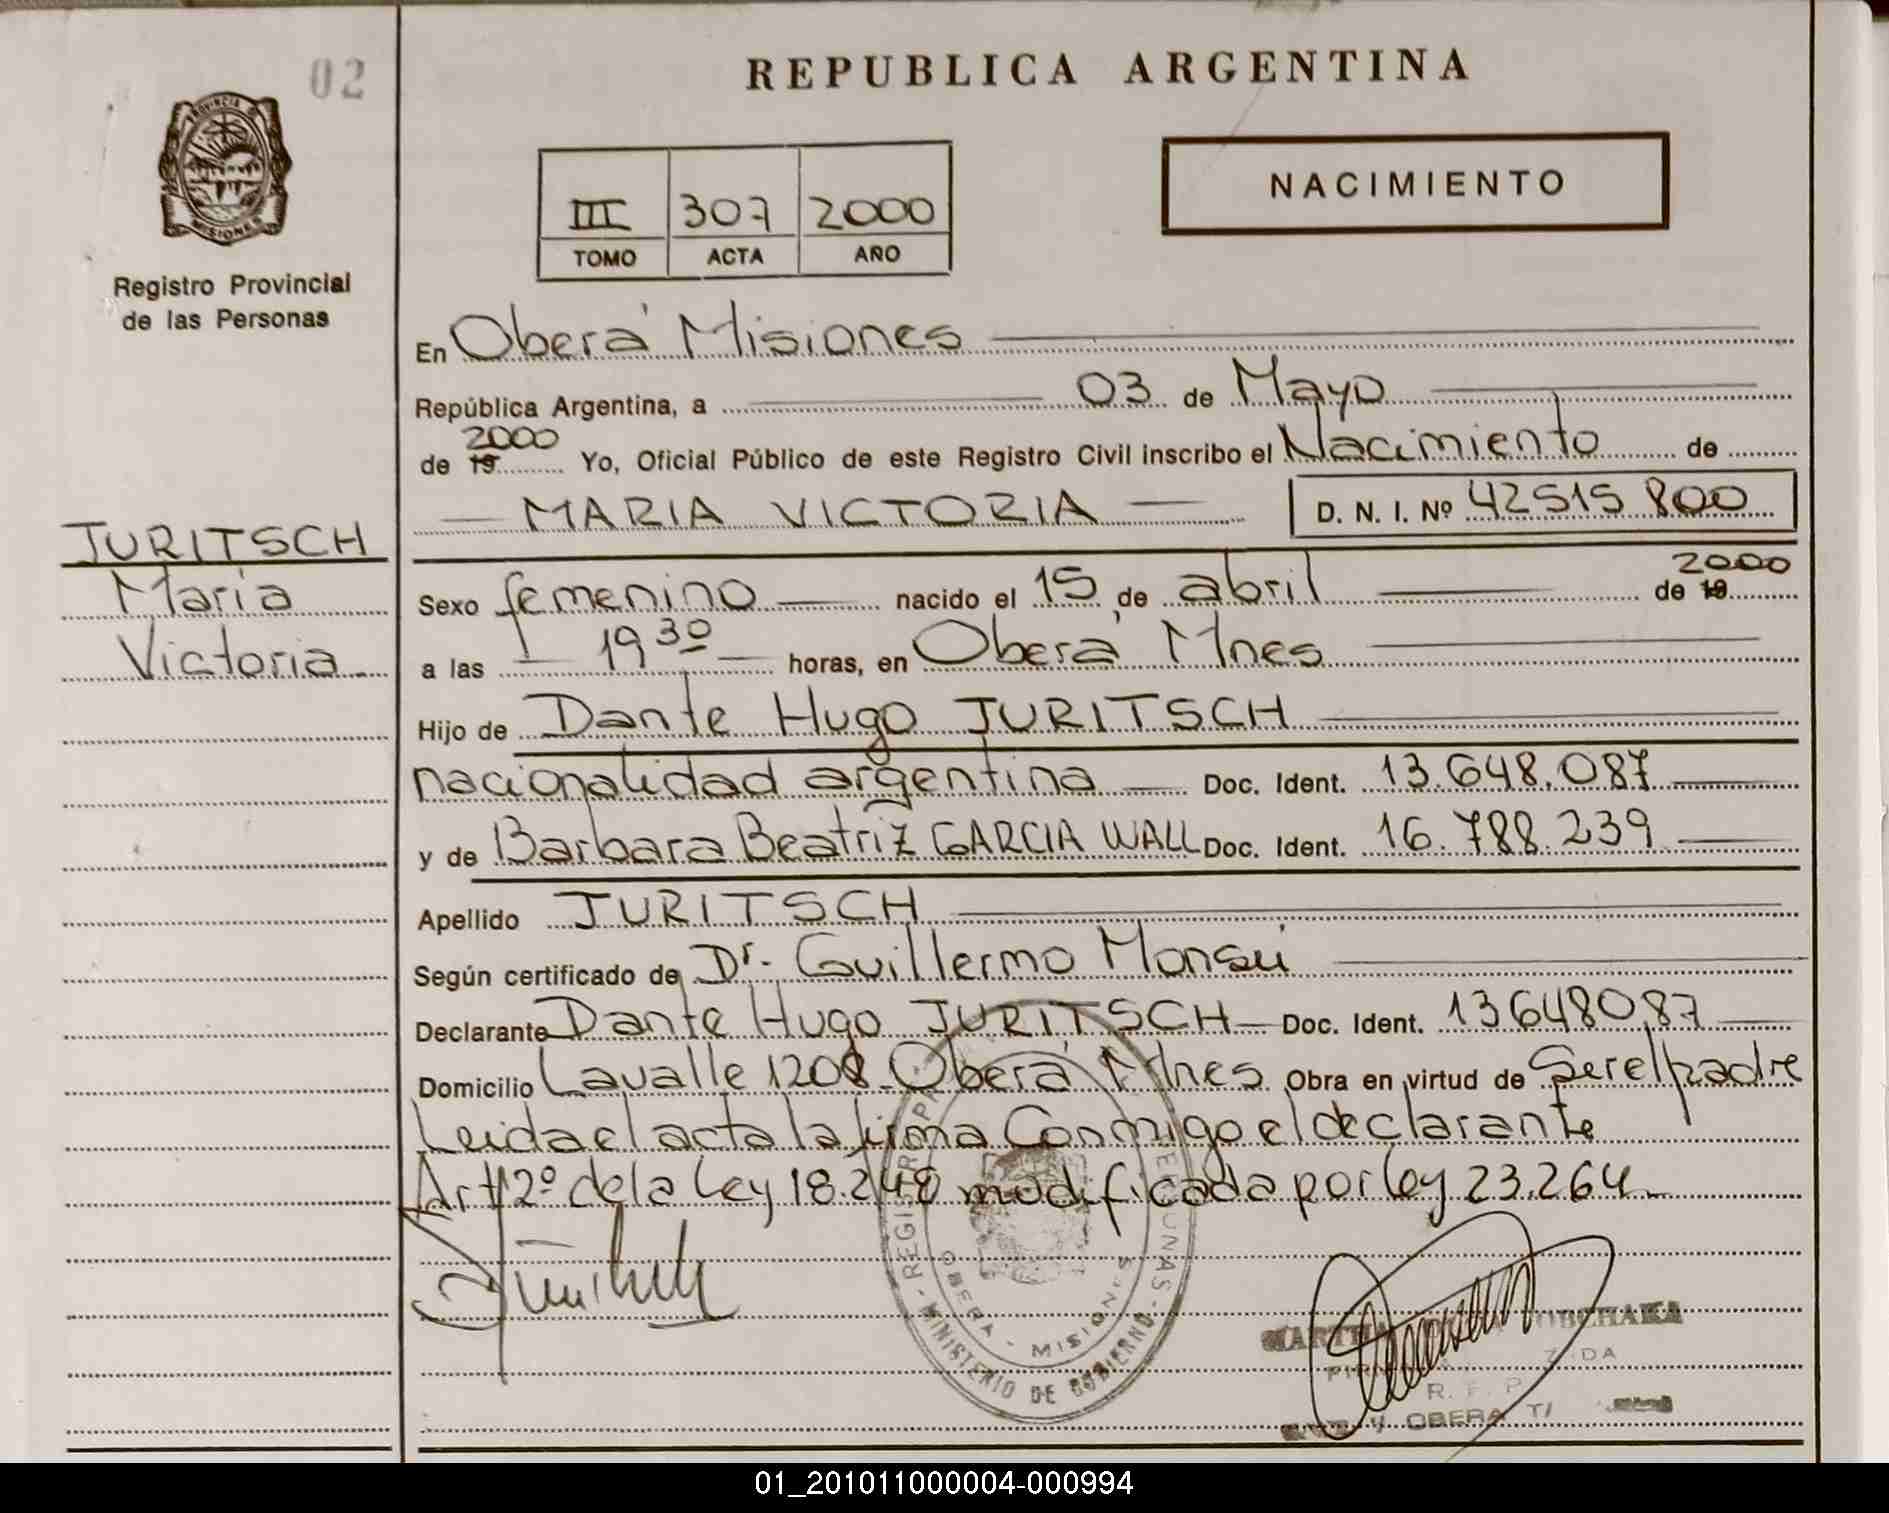 02
REPUBLICA ARGENTINA
NACIMIENTO
III 307 2000
TOMO ACTA AÑO
PROVINCIA DE MISIONES
Registro Provincial
de las Personas
JURITSCH
Maria
Victoria
En Oberá Misiones
República Argentina, a 03 de Mayo
de 19 2000 Yo, Oficial Público de este Registro Civil inscribo el Nacimiento de
MARIA VICTORIA D. N. I. Nº 42515 800
Sexo femenino nacido el 15 de abril de 19 2000
a las 19 30 horas, en Oberá Mnes
Hijo de Dante Hugo JURITSCH
nacionalidad argentina Doc. Ident. 13.648.087
y de Barbara Beatriz GARCIA WALL Doc. Ident. 16.788.239
Apellido JURITSCH
Según certificado de Dr. Guillermo Monsú
Declarante Dante Hugo JURITSCH Doc. Ident. 13648087
Domicilio Lavalle 1208 Oberá Mnes Obra en virtud de Ser el padre
Leida el acta la firma Conmigo el declarante
Art 2º de la Ley 18.248 modificada por ley 23.264
OBERA - MISIONES
MINISTERIO DE GOBIERNO
OBERA
01_201011000004-000994